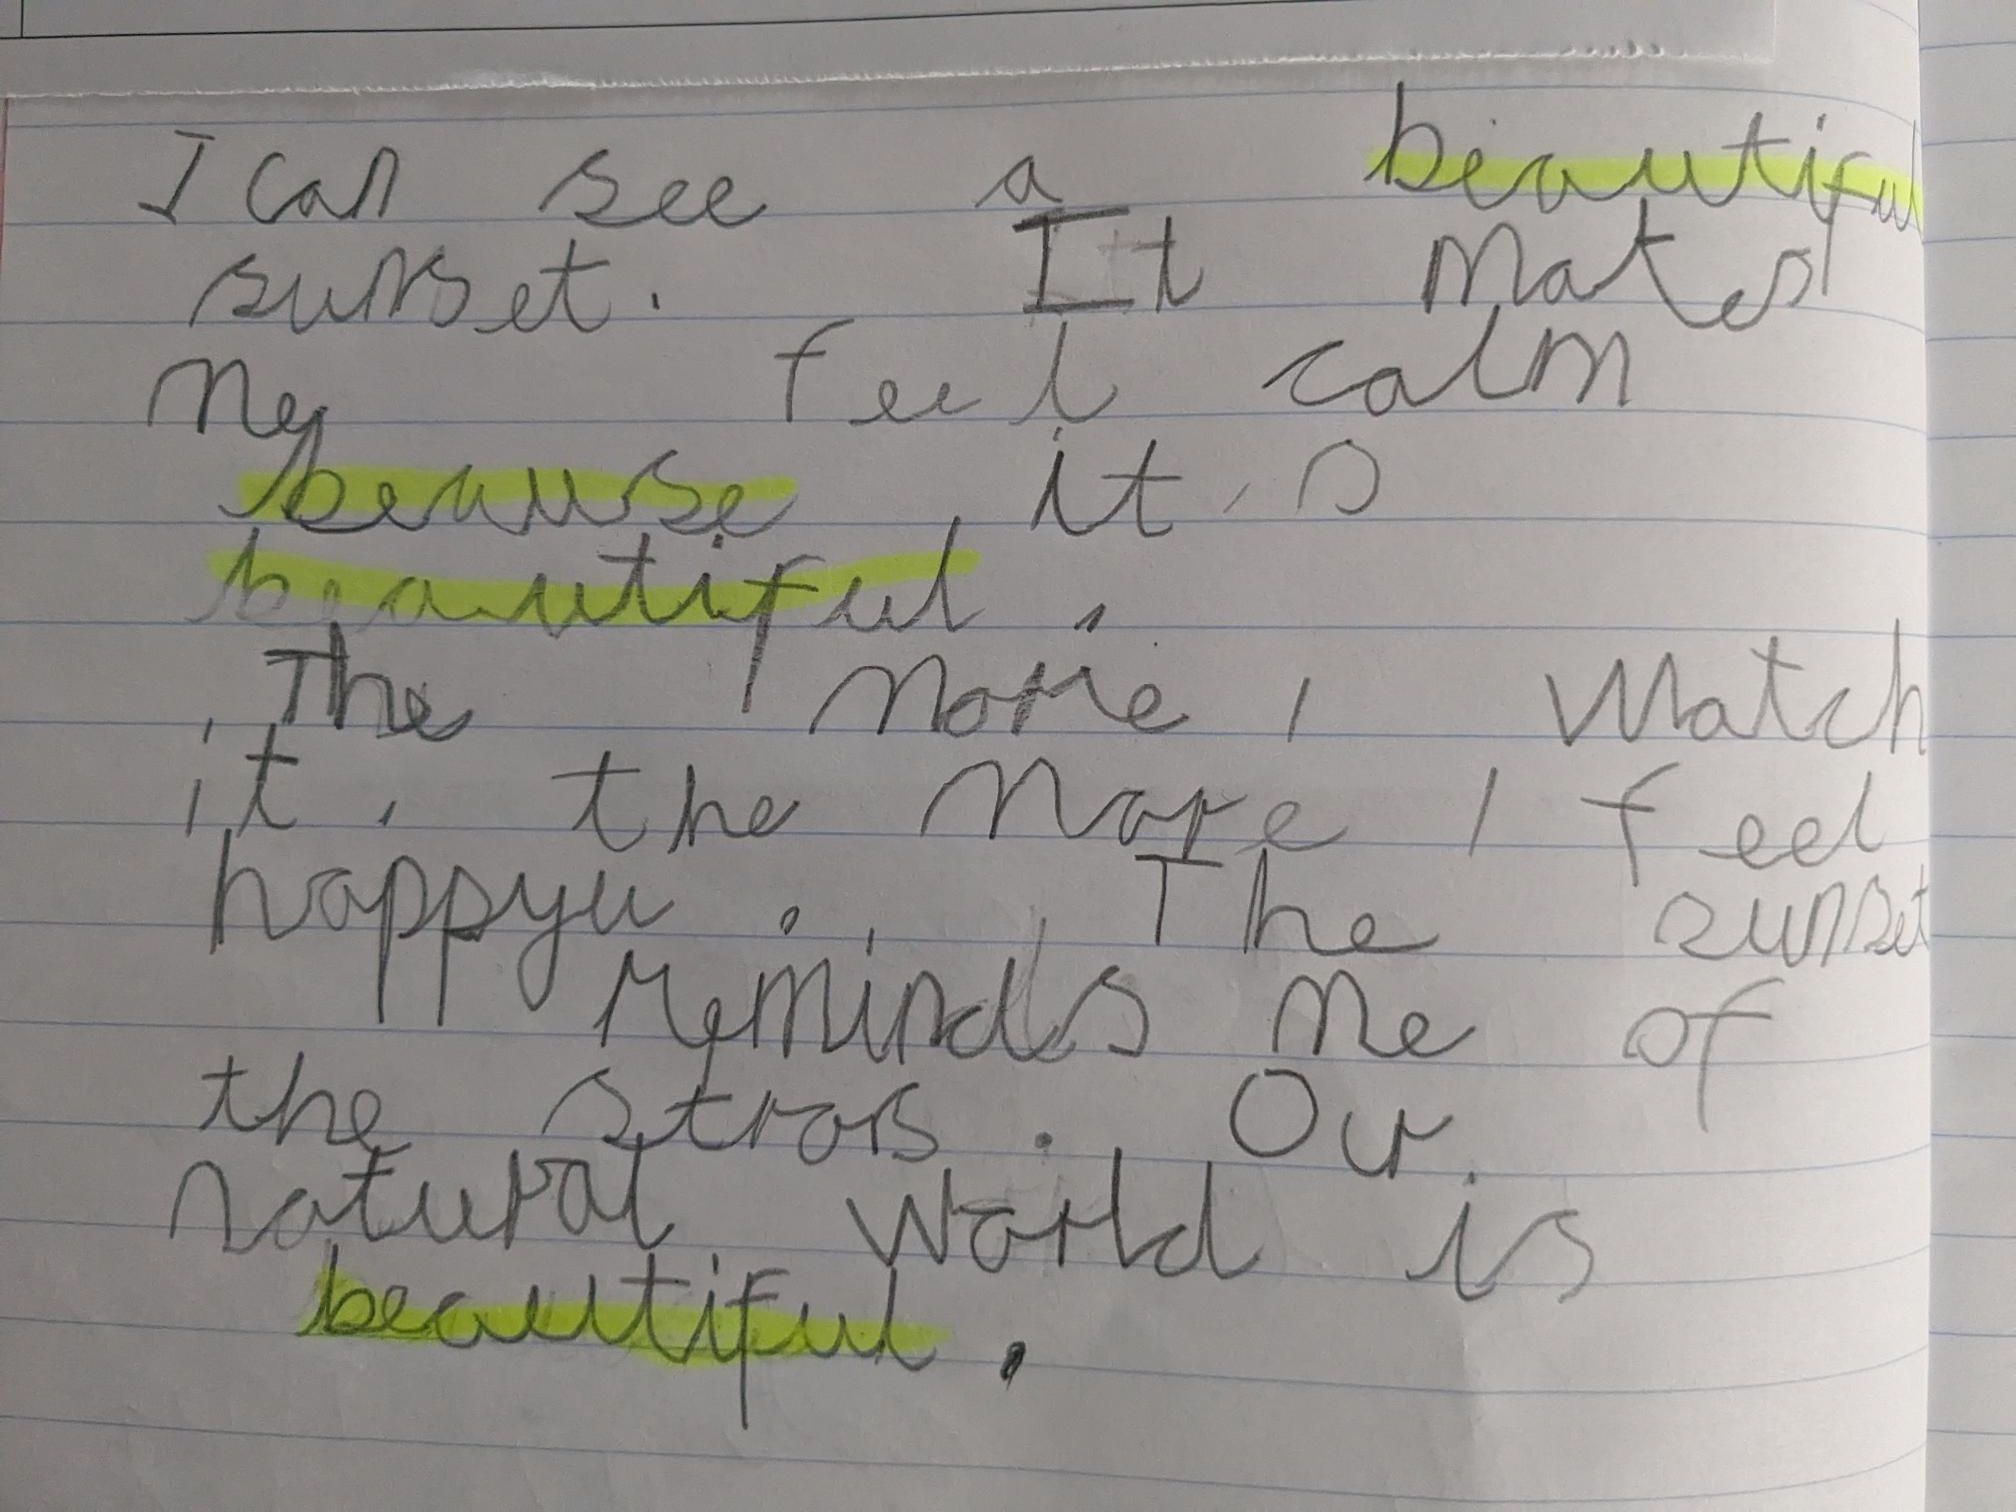 I can see a beautiful
sunset. It makes
me feel calm
beause it's
beautiful.
The more I watch
it, the more I feel
happyu. The sunset
reminds me of
the stros. Our
natural world is
beautiful.